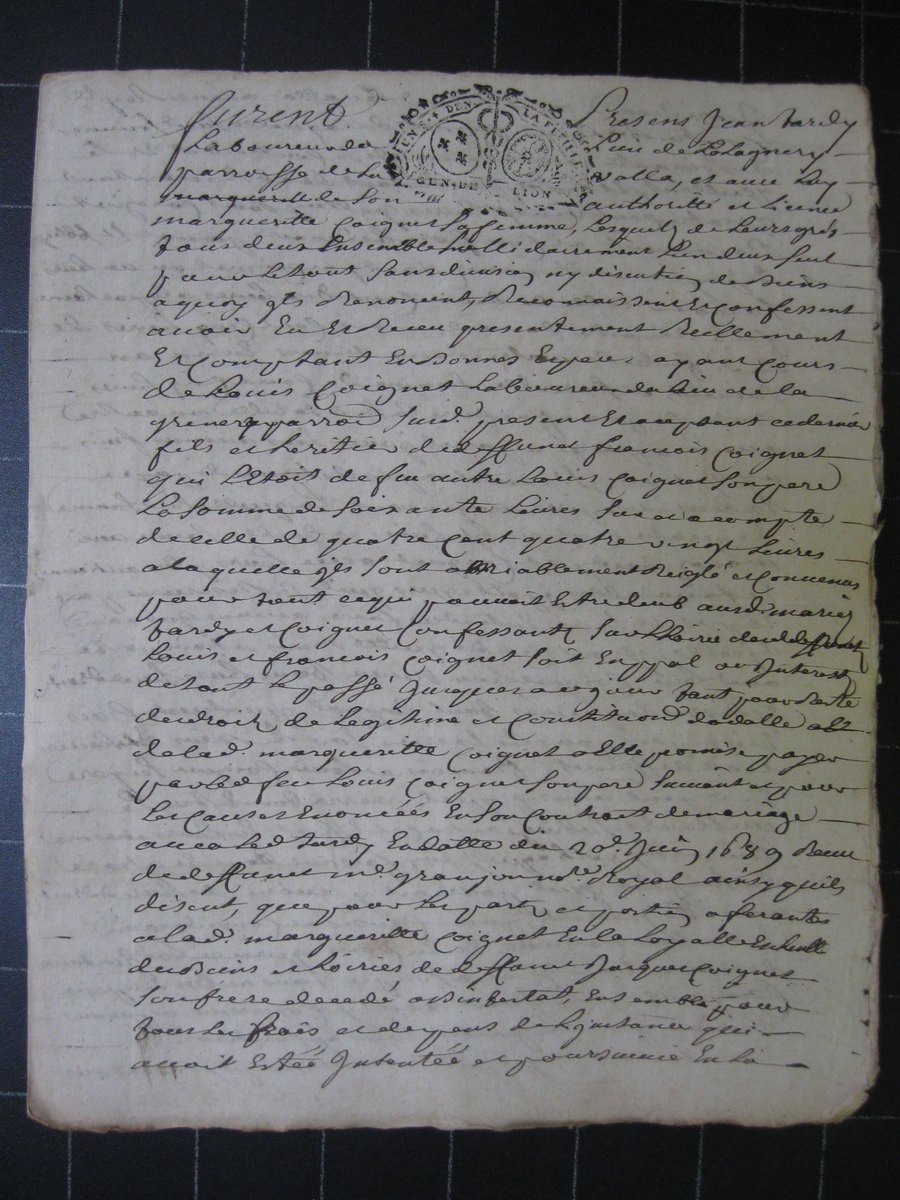 furent Presens Jean tardy
Laboureur du Lieu de Lalagnery
parroisse de La valla, et avec luy
margueritte de son authoritté et licence
margueritte Coignet sa femme, Lesquels de Leurs grés
tous deux Ensemble sollidairement L'un deux seul
pour Le tout sans division ny discution de biens
a quoy ils Renoncent, Reconnaissent Et confessent
avoir Eu Et Receu presentement Reellement
Et Comptant En bonnes Especes ayant cours
de Louis Coignet Laboureur du Lieu de la
parroi susd. present Et acceptant ce dernier
fils et heritier de deffunct francois Coignet
qui L'Etoit de feu autre Louis Coignet son pere
La somme de soixante Livres sur et a compte
de celle de quatre cent quatre vingt Livres
a laquelle ils sont amiablement Reiglé et Convenus
pour tout ce qui pouvoit Etre deub ausd. mariés
tardy et Coignet Confessants sur L'hoirie desd. deffunct
Louis et francois Coignet soit En ppal ou Interest
de tout Le passé Jusques a ce jour tant pour Reste
des droits de Legitime et Constitution
de lad. margueritte Coignet a Elle promise payer
par Led feu Louis Coignet son pere suivant et pour
Les Causes Enoncées En son Contract de mariage
avec Led tardy En datte du 20e. Juin 1689 Receu
de deffunct me. granjon nore. Royal ainsy quils
disent, que pour Les parts et portions aferantes
a lad. margueritte Coignet En la
des biens et hoiries de deffunct Jacques Coignet
son frere decedé ab intestat, Ensemble pour
tous Les frais et depens de L'instance qui
avoit Estéé Intentéé et poursuivie En La
GEN. DE LION
LA FEUILLE